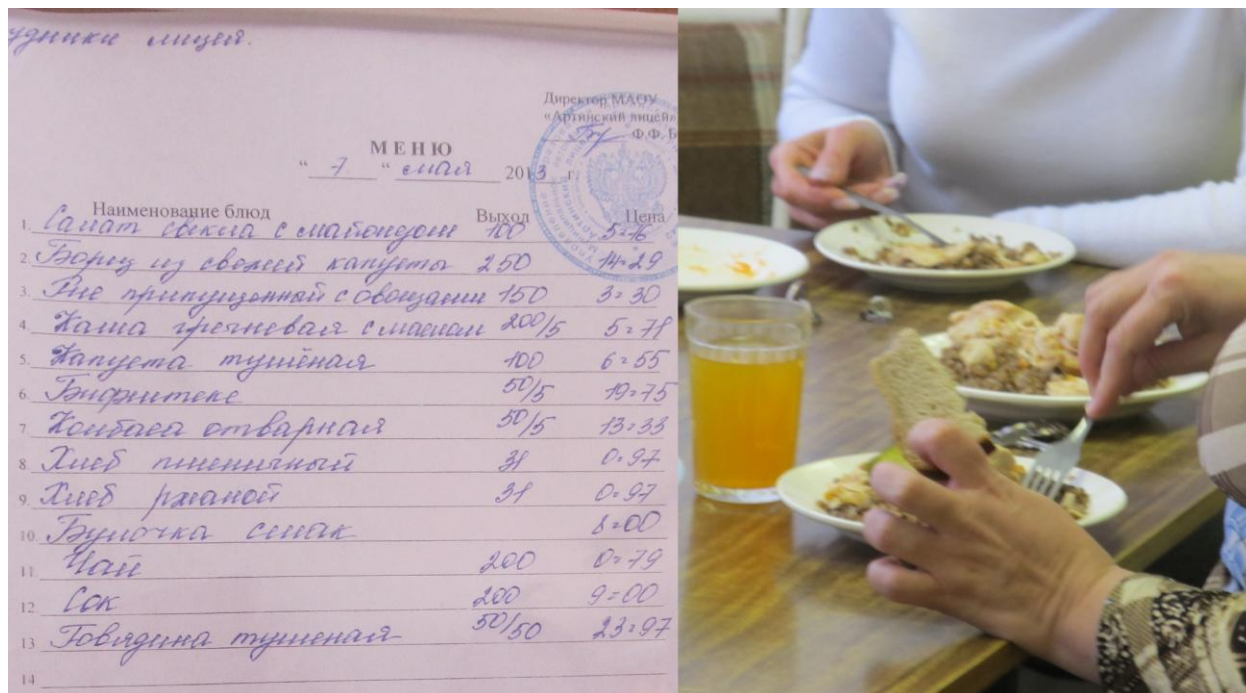 удники лицей.
Директор МАОУ
«Артинский лицей»
Ф.Ф. Б
МЕНЮ
" 7 " мая 2013 г.
Наименование блюд Выход Цена
1. Салат свекла с майонезом 100 5=16
2. Борщ из свежей капусты 250 14=29
3. Рис припущенной с овощами 150 3=30
4. Каша гречневая с маслом 200/5 5=71
5. Капуста тушёная 100 6=55
6. Бифштекс 50/5 19=75
7. Колбаса отварная 50/5 13=33
8. Хлеб пшеничный 31 0=97
9. Хлеб ржаной 31 0=97
10. Булочка смак 8=00
11. Чай 200 0=79
12. Сок 200 9=00
13. Говядина тушеная 50/50 23=97
14.